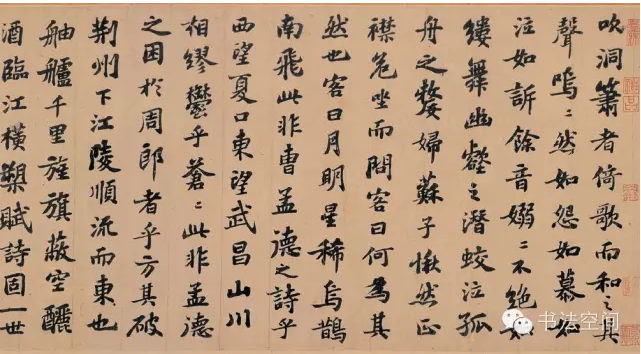 吹洞簫者倚歌而和之其
聲嗚〻然如怨如慕如
泣如訴餘音嫋〻不絕如
縷舞幽壑之潛蛟泣孤
舟之嫠婦蘇子愀然正
襟危坐而問客曰何為其
然也客曰月明星稀烏鵲
南飛此非曹孟德之詩乎
西望夏口東望武昌山川
相繆鬱乎蒼〻此非孟德
之困於周郎者乎方其破
荊州下江陵順流而東也
舳艫千里旌旗蔽空釃
酒臨江橫槊賦詩固一世
书法空间